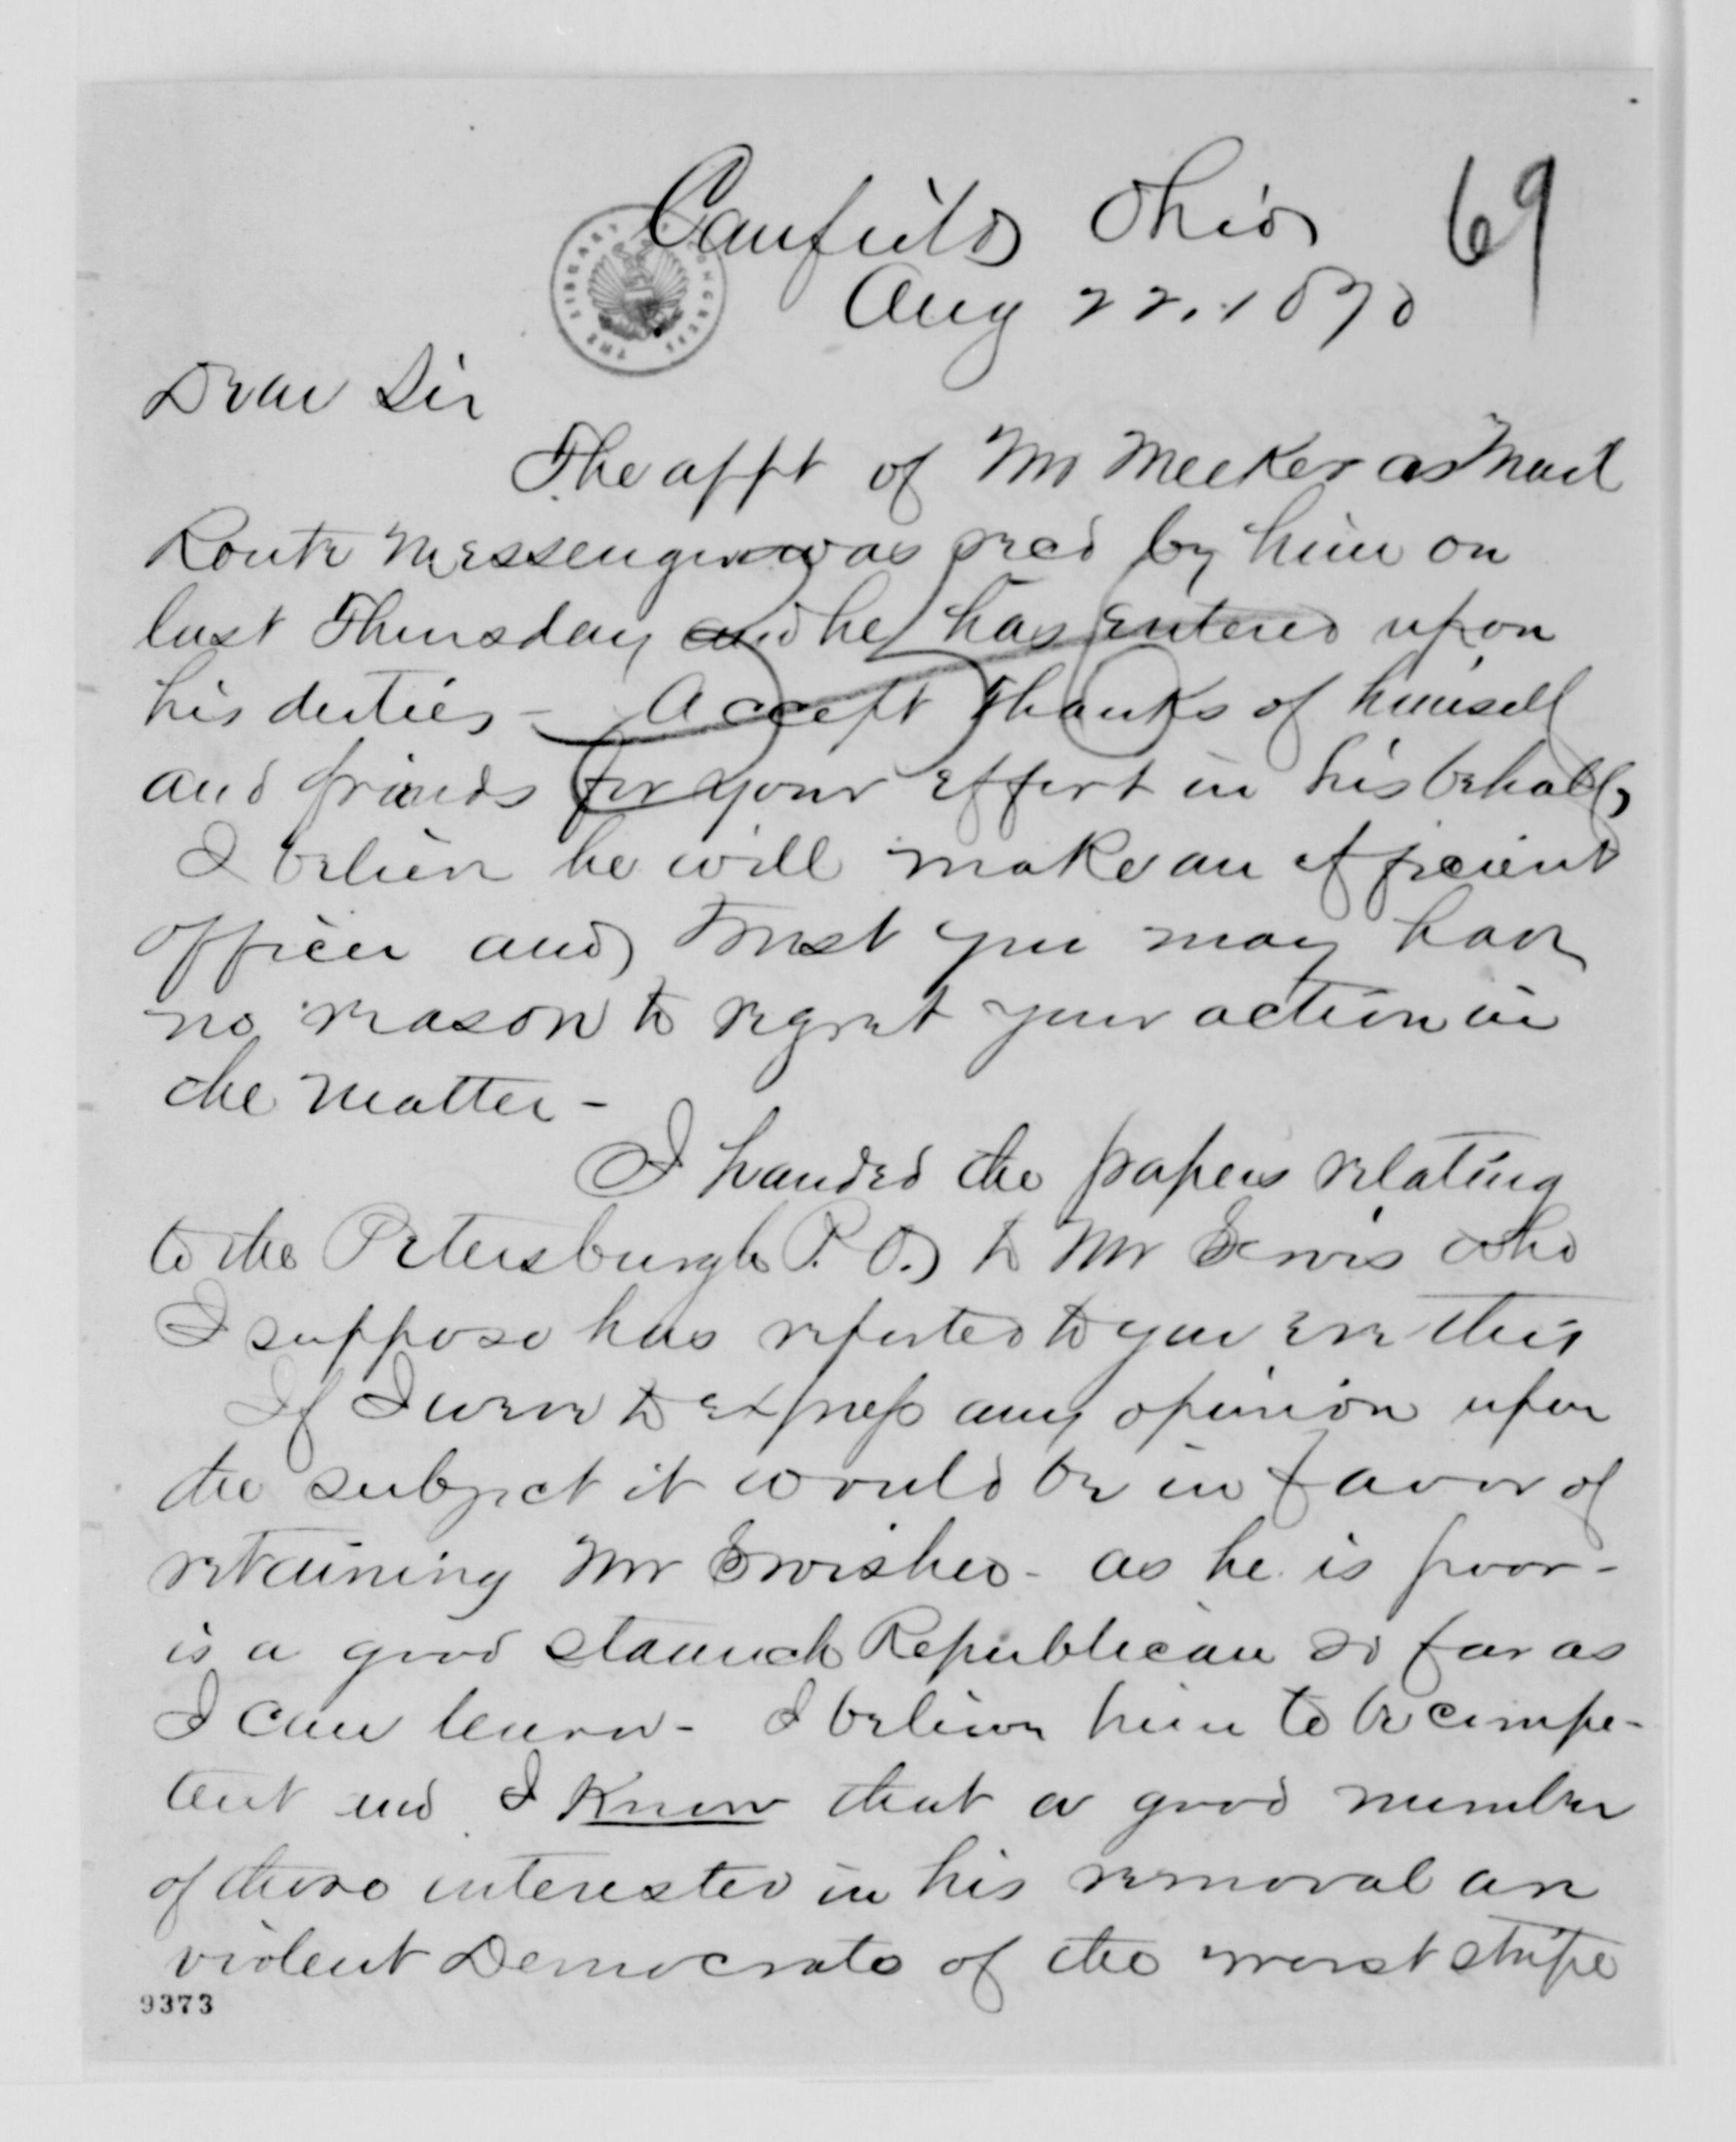 Canfield Ohio
69
Aug 22. 1870
THE LIBRARY OF CONGRESS
Dear Sir
The appt of Mr Meeker as Mail
Route Messenger was recd by him on
last Thursday and he has entered upon
his duties - Accept thanks of himself
and friends for your effort in his behalf,
I believe he will make an efficient
officer and trust you may have
no reason to regret your action in
the matter -
I handed the papers relating
to the Petersburgh P.O. to Mr who
I suppose has reported to you ere this
If I were to express any opinion upon
the subject it would be in favor of
retaining Mr - as he is poor -
is a good staunch Republican so far as
I can learn - I believe him to be compe-
tent and I know that a good number
of those interested in his removal are
violent Democrats of the worst stripe
9373